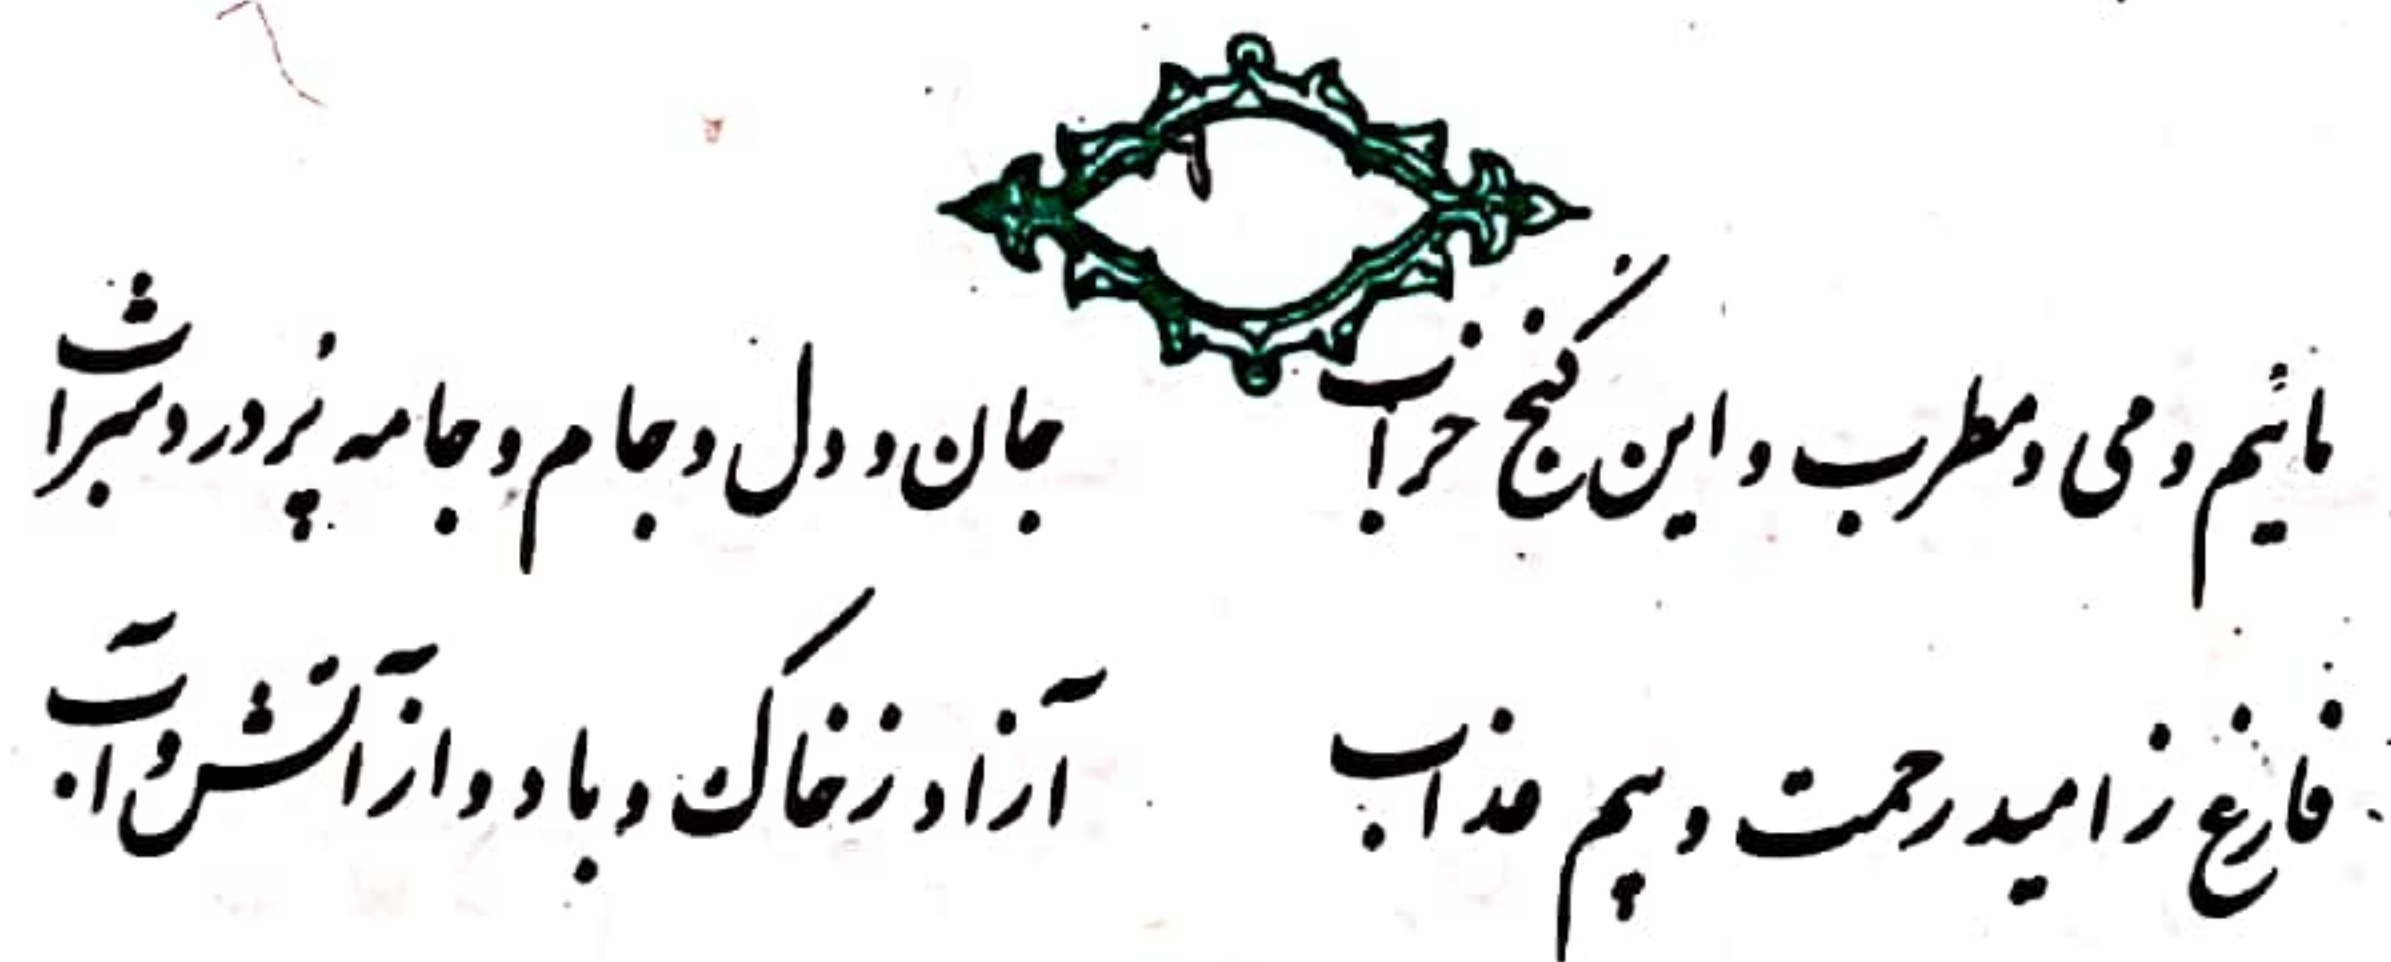 ۶
مائیم و می و مطرب و این کنج خراب جان و دل و جام و جامه پُر درد شراب
فارغ ز امید رحمت و بیم عذاب آزاد ز خاک و باد و از آتش و آب